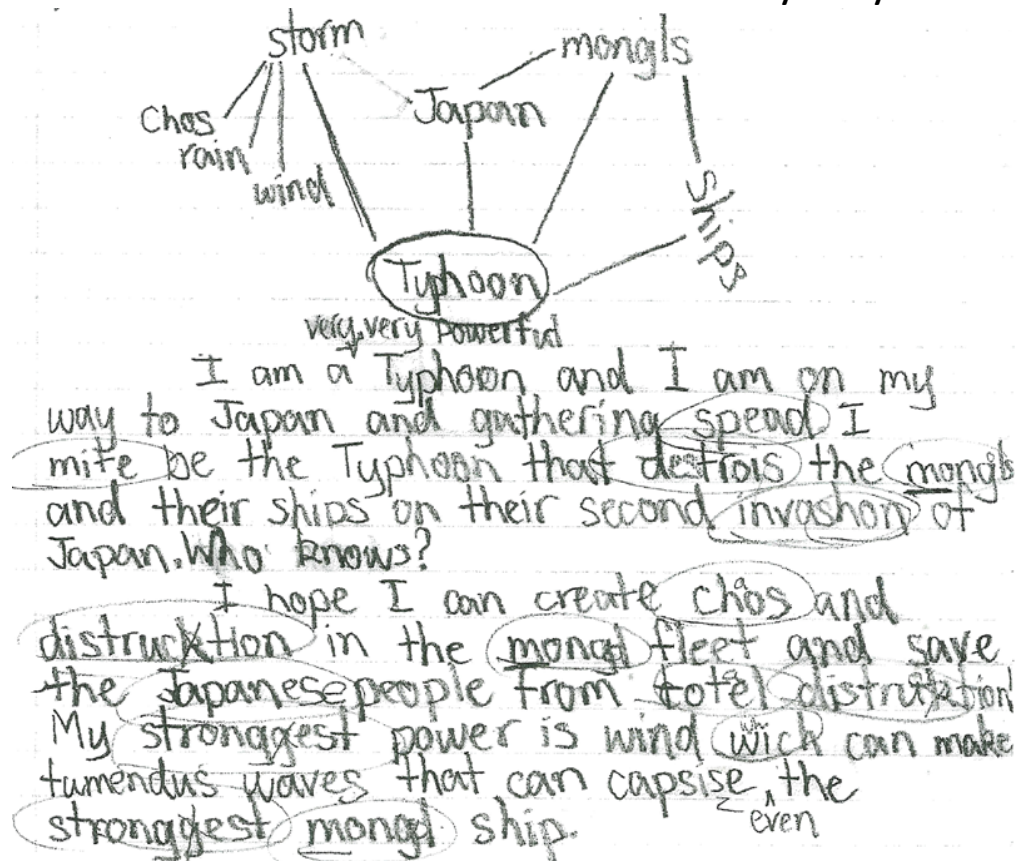 storm
mongls
Japan
Chaos
rain
wind
ships
Typhoon
very, very powerful
I am a Typhoon and I am on my
way to Japan and gathering spead I
mite be the Typhoon that destrois the mongls
and their ships on their second invashon of
Japan. Who knows?
I hope I can create chaos and
distrucktion in the mongl fleet and save
the Japanese people from total distrucktion
My stronggest power is wind wich can make
tumendus waves that can capsise the
even
stronggest mongl ship.